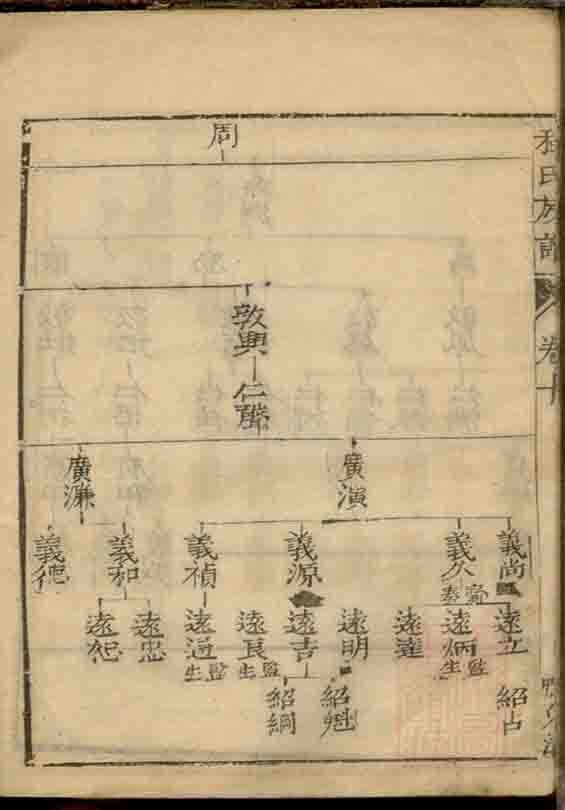 氏族譜 卷十
周
敦興
仁
廣演
廣濂
義尚
義久
義源
義禎
義和
義德
遠立
遠炳 監生
遠達
遠明
遠吉
遠良 監生
遠 監生
遠忠
遠紀
紹占
紹魁
紹綱